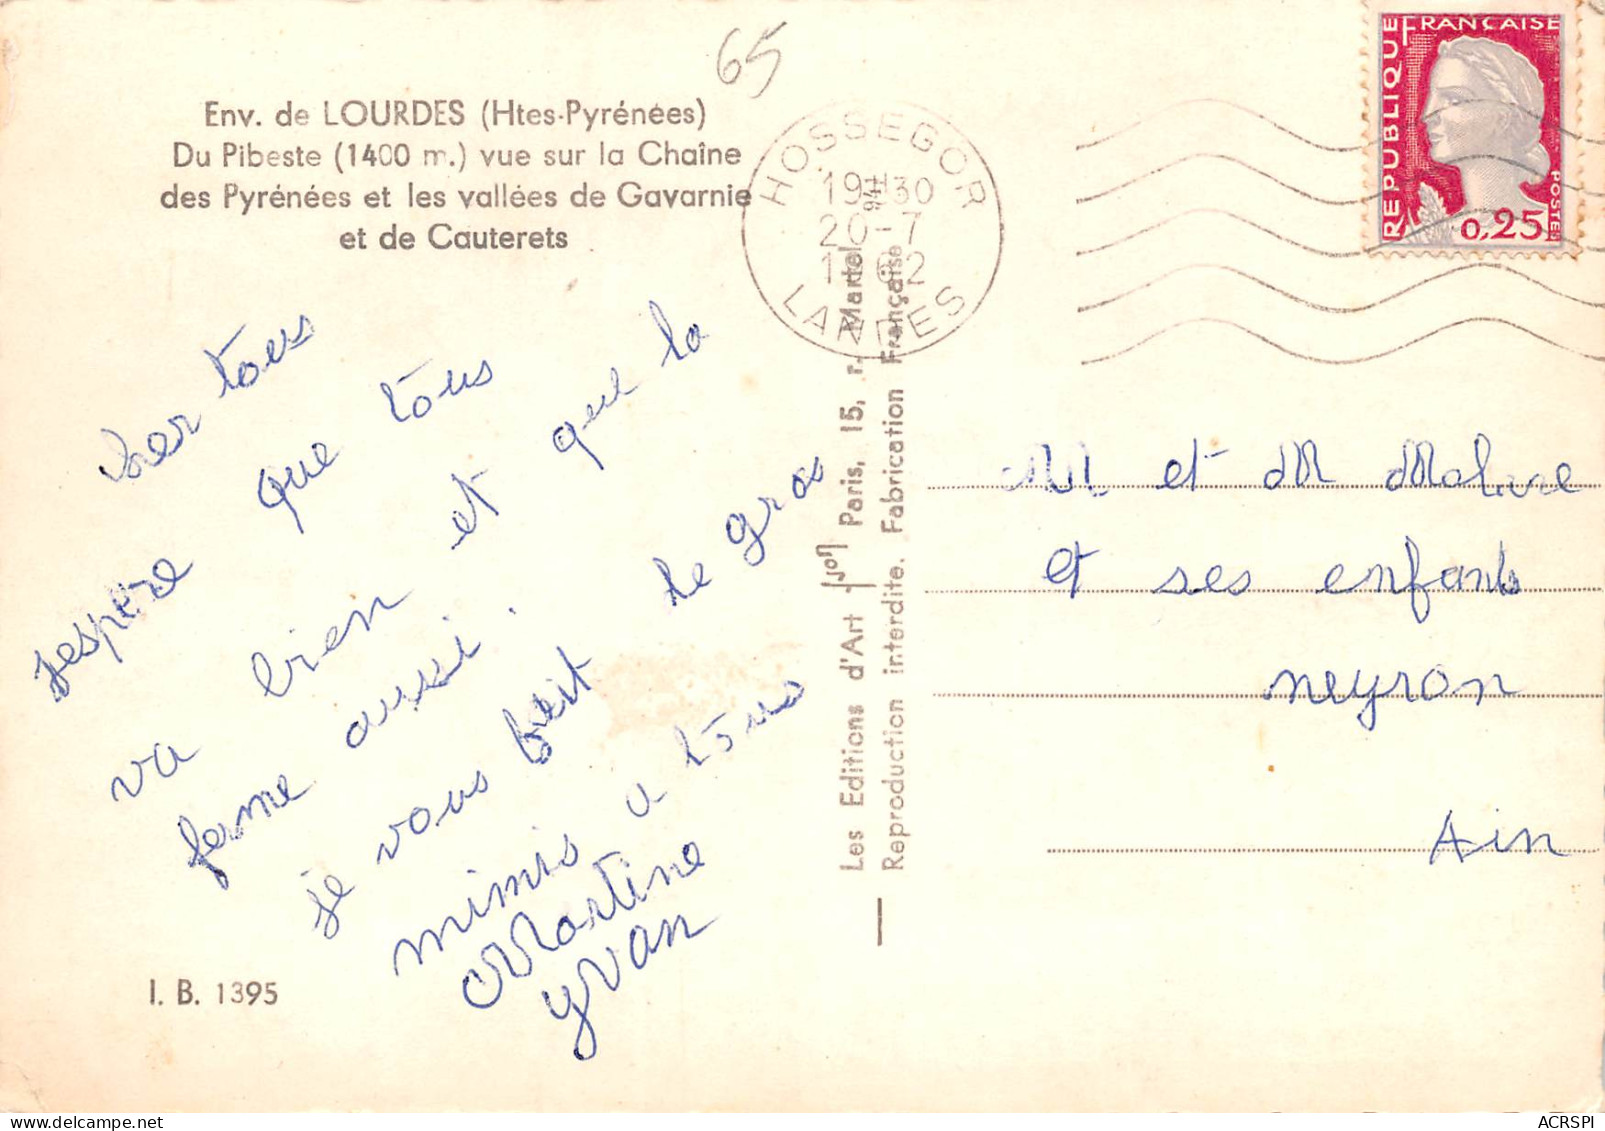 65
Env. de LOURDES (Htes-Pyrénées)
Du Pibeste (1400 m.) vue sur la Chaîne
des Pyrénées et les vallées de Gavarnie
et de Cauterets
HOSSEGOR
19H30
20-7
1962
LANDES
RÉPUBLIQUE FRANÇAISE
POSTES
0,25
cher tous
jespère que tous
va bien et que la
fame aussi.
je vous fait de gros
mimis a tous
Martine
yvan
I. B. 1395
Les Editions d'Art Yvon Paris, 15, r. Martel
Reproduction interdite. Fabrication Française
M et M Molivre
et ses enfants
neyron
Ain
ACRSPI